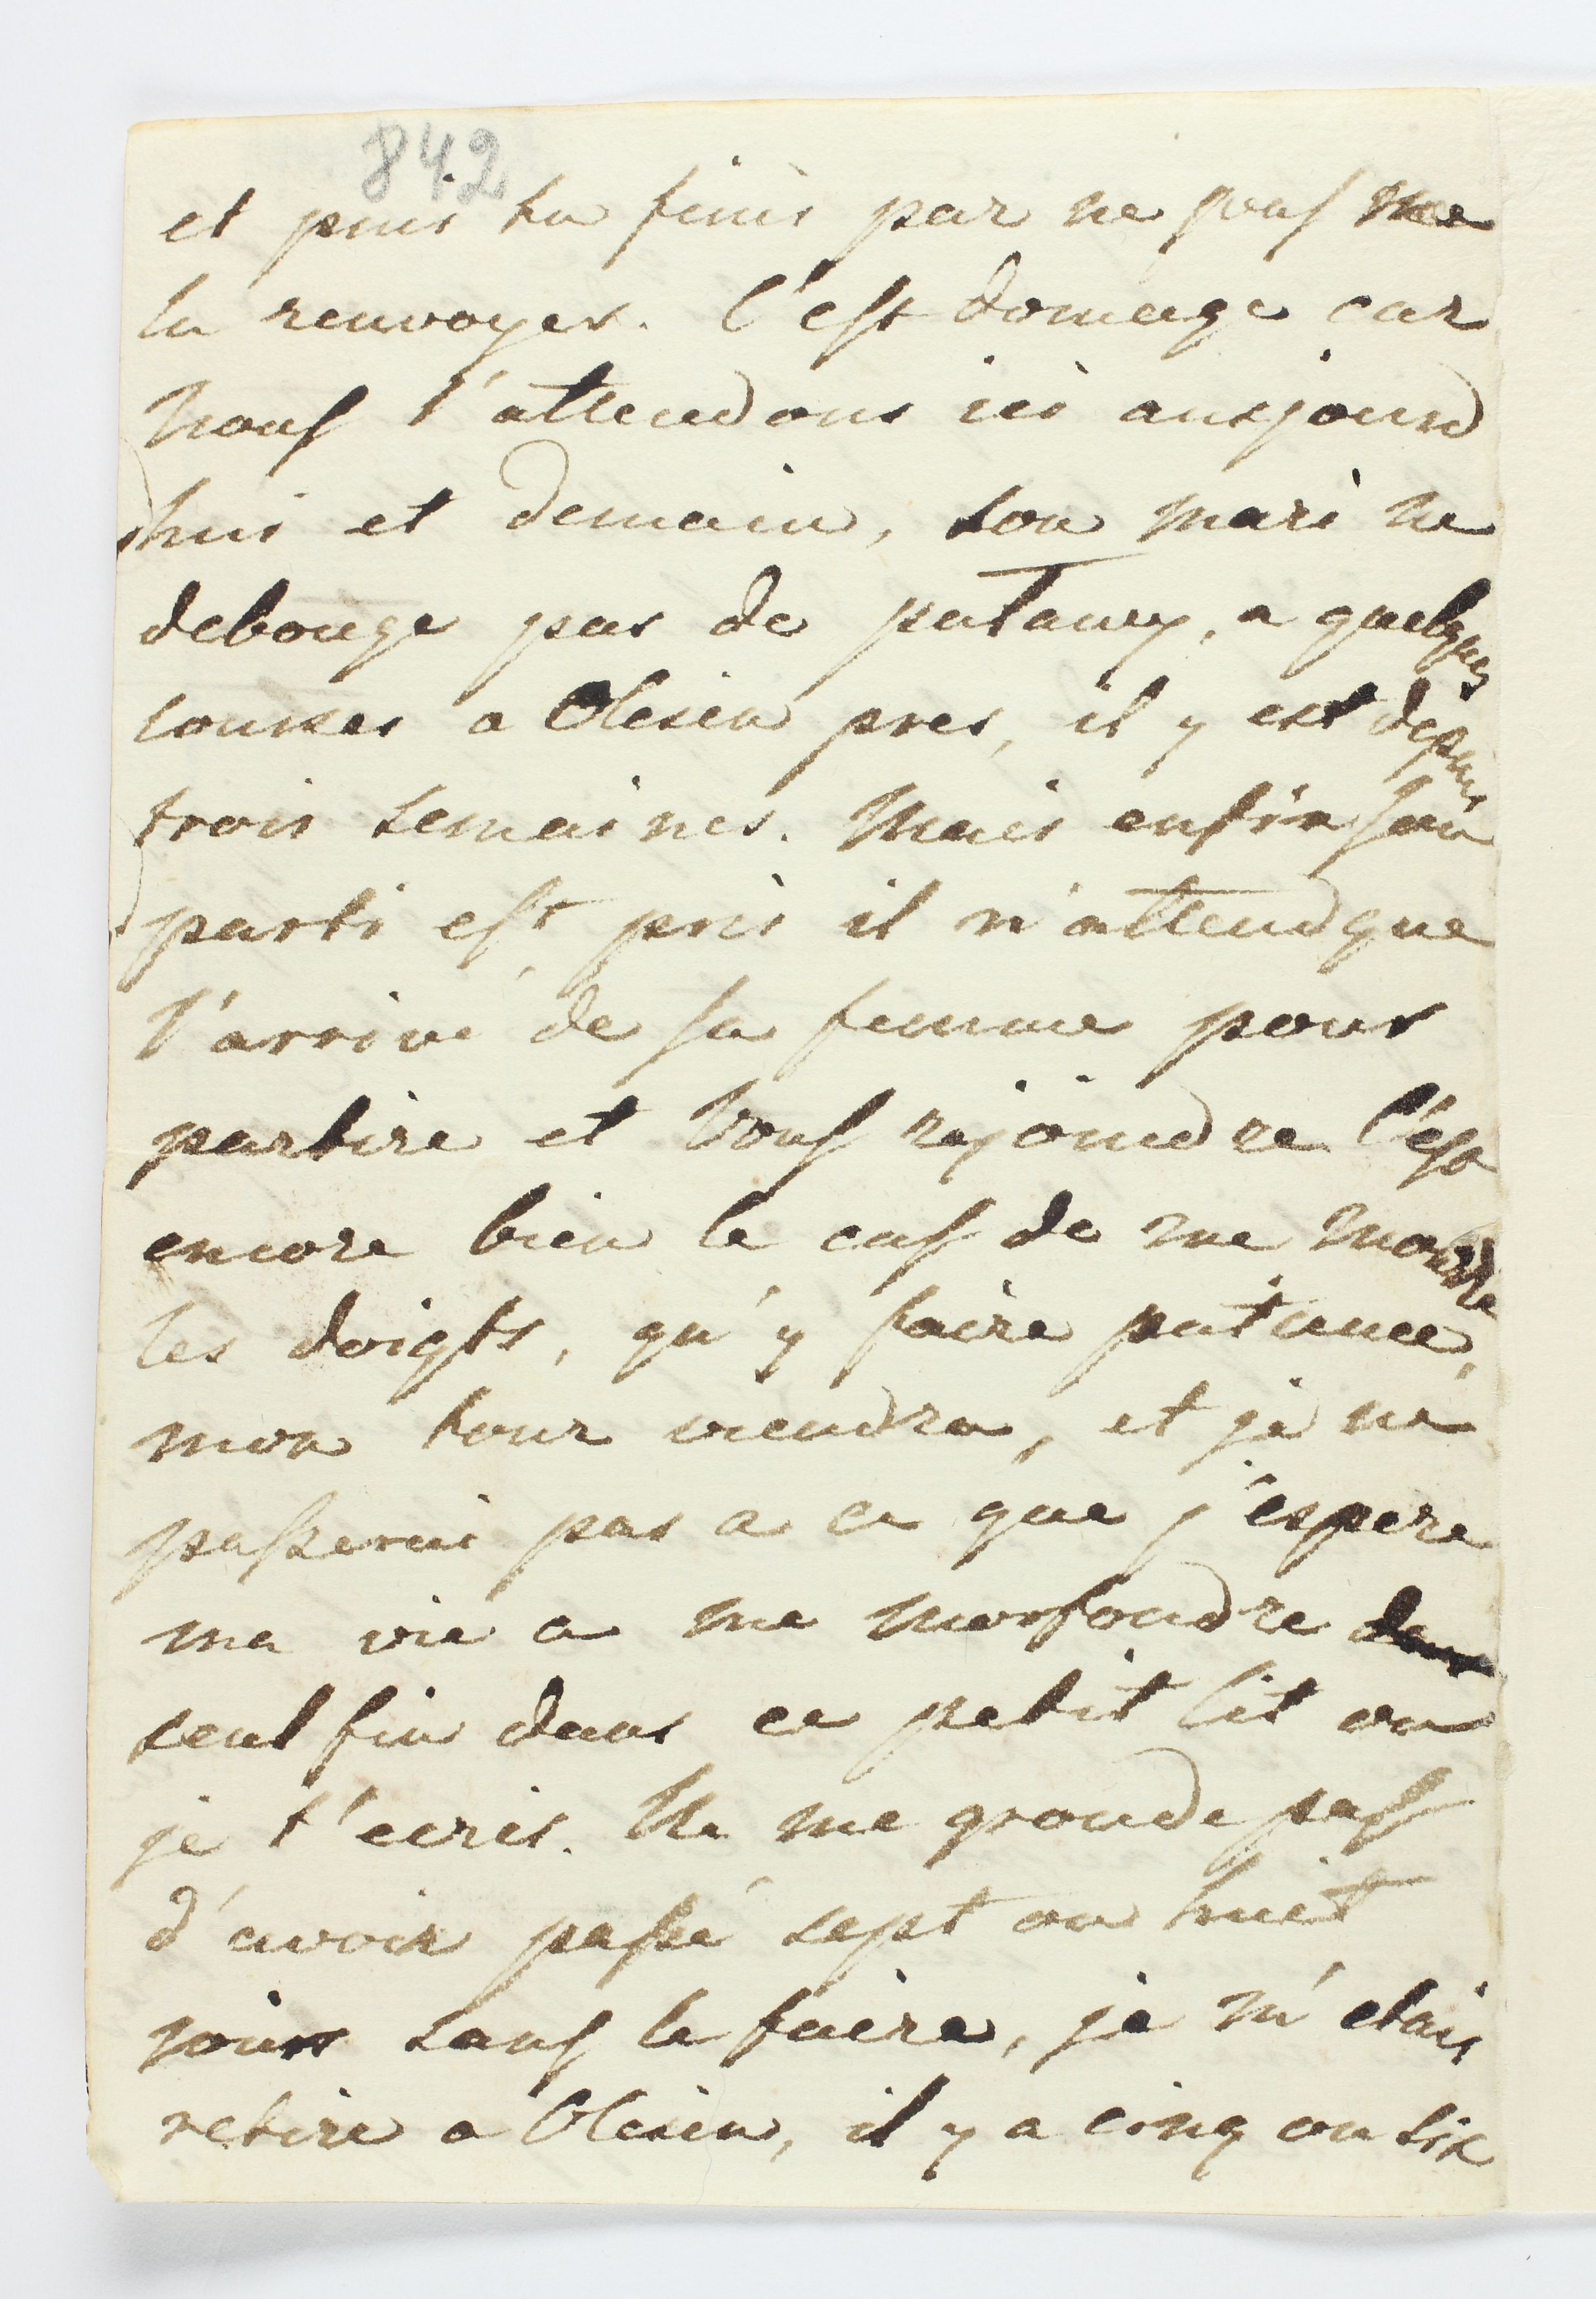 842
et puis tu finis par ne pas me
la renvoyer. C'est domage car
nous l'attendons ici ausjourd
hui et demain, son mari ne
debouge pas de putawy, a quelques
courses a Olesin pres, il y est depuis
trois semaines. Mais enfin son
parti est pris il n'attend que
l'arrivé de sa femme pour
partire et vous rejoindre C'est
encore bien le cas de me mordre
les doigts, qu'y faire patience,
mon tour viendra, et je ne
passerai pas a ce que j'espere
ma vie a me morfondre dans
seul fin dans ce petit lit ou
je t'ecris. Ne me gronde pas
d'avoir passé sept ou huit
jours sans le faire, je m'etais
retire a Olesin, il y a cinq ou six